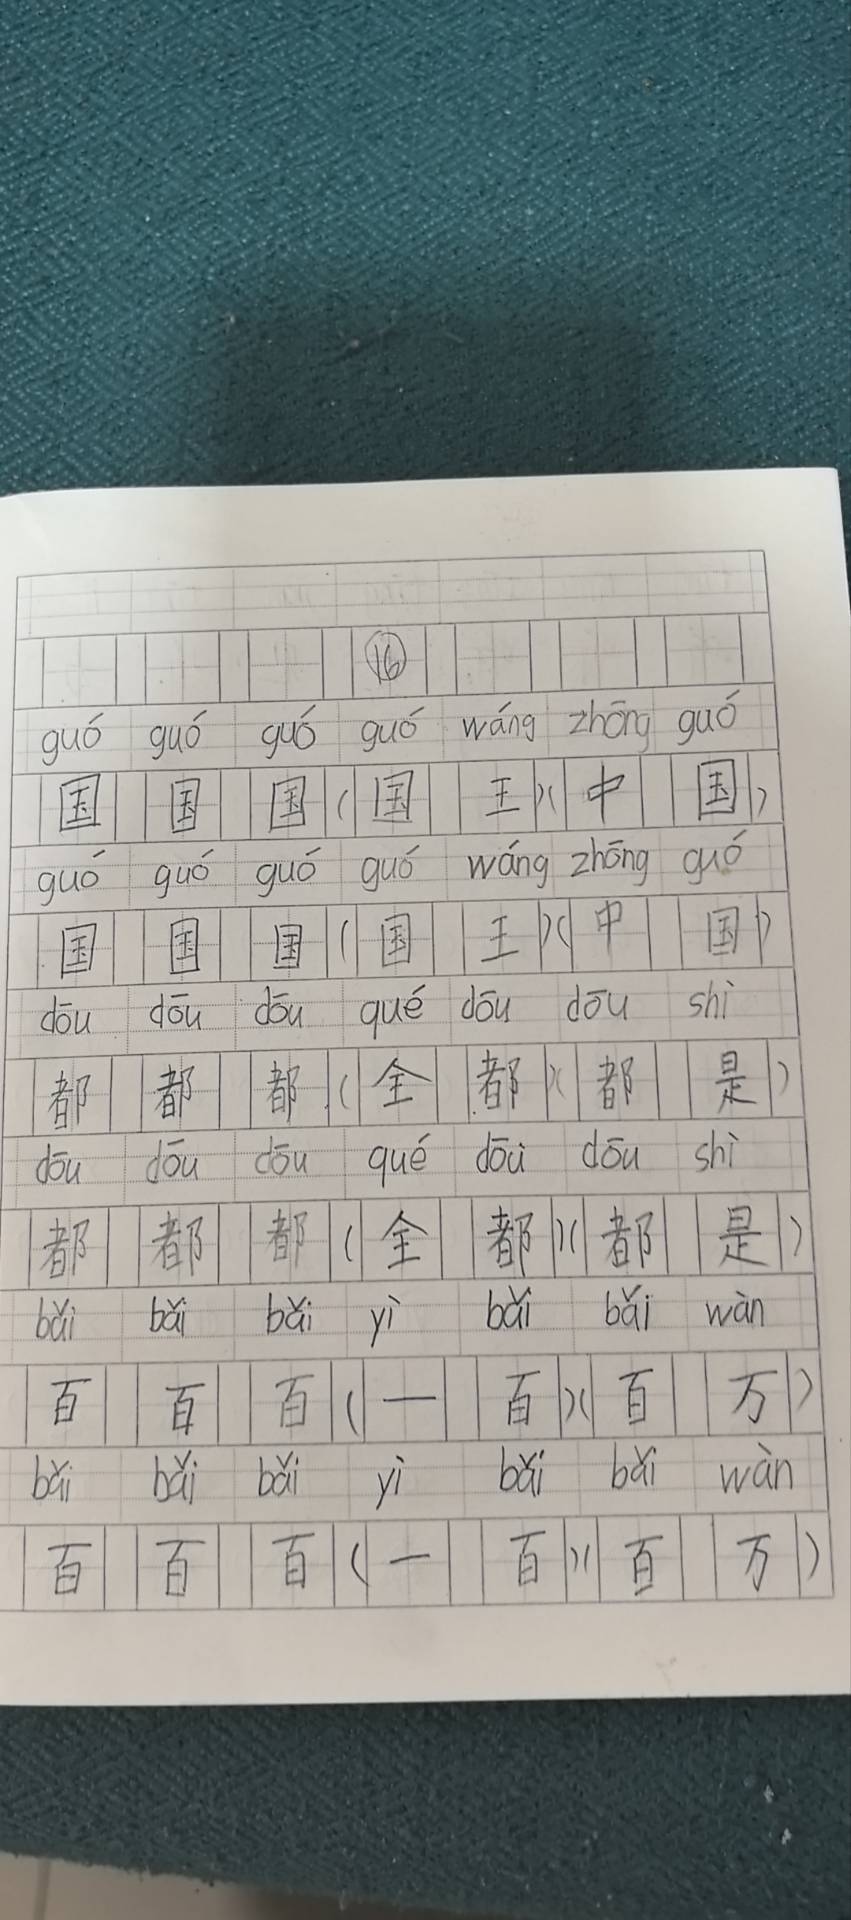 ⑯
guó guó guó guó wáng zhōng guó
国 国 国 ( 国 王 )( 中 国 )
guó guó guó guó wáng zhōng guó
国 国 国 ( 国 王 )( 中 国 )
dōu dōu dōu qué dōu dōu shì
都 都 都 ( 全 都 )( 都 是 )
dōu dōu dōu qué dōu dōu shì
都 都 都 ( 全 都 )( 都 是 )
bǎi bǎi bǎi yì bǎi bǎi wàn
百 百 百 ( 一 百 )( 百 万 )
bǎi bǎi bǎi yì bǎi bǎi wàn
百 百 百 ( 一 百 )( 百 万 )